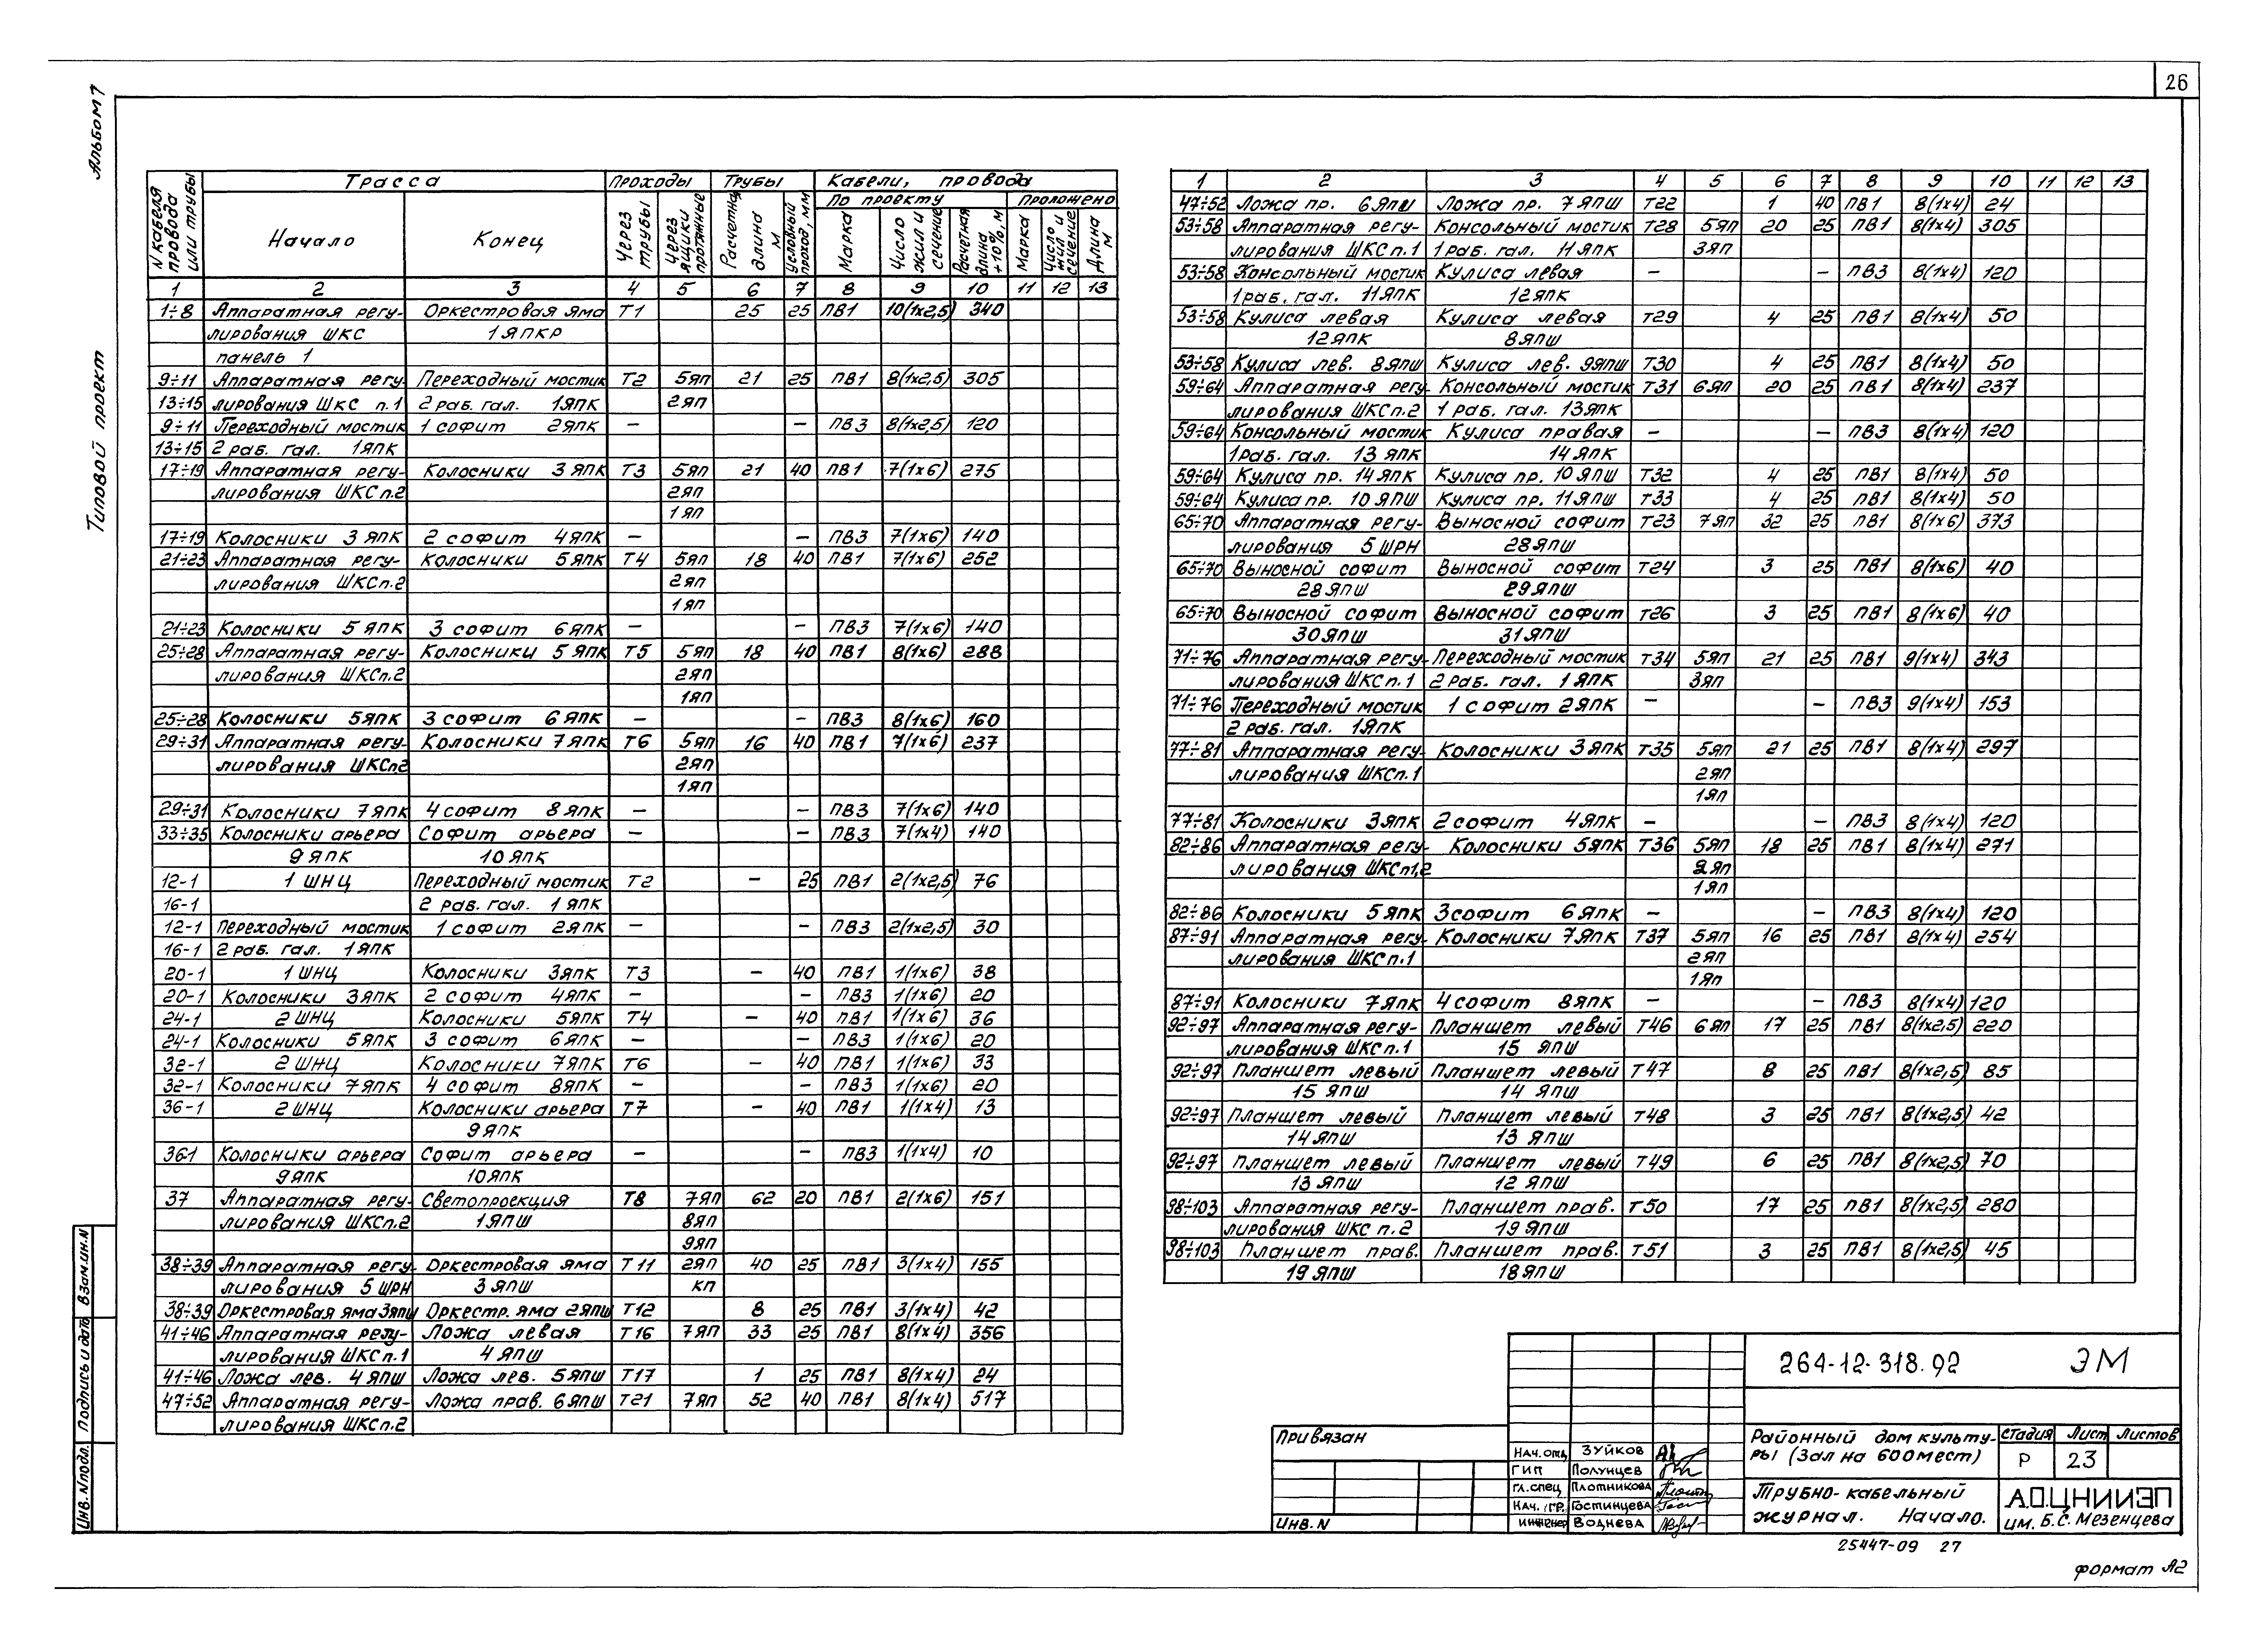 26
Альбом 7
Типовой проект
N кабеля провода или трубы | Трасса | Проходы | Трубы | Кабели, провода
По проекту | Проложено
Начало | Конец | Через трубы | Через ящики протяжные | Расчетная длина м | Условный проход, мм | Марка | Число жил и сечение | Расчетная длина +10%, м | Марка | Число жил и сечение | Длина м
1 2 3 4 5 6 7 8 9 10 11 12 13
1÷8 Аппаратная регу- Оркестровая яма Т1 25 25 ПВ1 10(1х2,5) 340
лирования ШКС 1ЯПКР
панель 1
9÷11 Аппаратная регу- Переходный мостик Т2 5ЯП 21 25 ПВ1 8(1х2,5) 305
13÷15 лирования ШКС п.1 2 раб. гал. 1ЯПК 2ЯП
9÷11 Переходный мостик 1 софит 2ЯПК – – ПВ3 8(1х2,5) 120
13÷15 2 раб. гал. 1ЯПК
17÷19 Аппаратная регу- Колосники 3ЯПК Т3 5ЯП 21 40 ПВ1 7(1х6) 275
лирования ШКСп.2 2ЯП
1ЯП
17÷19 Колосники 3ЯПК 2 софит 4ЯПК – – ПВ3 7(1х6) 140
21÷23 Аппаратная регу- Колосники 5ЯПК Т4 5ЯП 18 40 ПВ1 7(1х6) 252
лирования ШКСп.2 2ЯП
1ЯП
21÷23 Колосники 5ЯПК 3 софит 6ЯПК – – ПВ3 7(1х6) 140
25÷28 Аппаратная регу- Колосники 5ЯПК Т5 5ЯП 18 40 ПВ1 8(1х6) 288
лирования ШКСп.2 2ЯП
1ЯП
25÷28 Колосники 5ЯПК 3 софит 6ЯПК – – ПВ3 8(1х6) 160
29÷31 Аппаратная регу- Колосники 7ЯПК Т6 5ЯП 16 40 ПВ1 7(1х6) 237
лирования ШКСп2 2ЯП
1ЯП
29÷31 Колосники 7ЯПК 4 софит 8ЯПК – – ПВ3 7(1х6) 140
33÷35 Колосники арьера Софит арьера – – ПВ3 7(1х4) 140
9ЯПК 10ЯПК
12-1 1 ШНЦ Переходный мостик Т2 – 25 ПВ1 2(1х2,5) 76
16-1 2 раб. гал. 1ЯПК
12-1 Переходный мостик 1 софит 2ЯПК – – ПВ3 2(1х2,5) 30
16-1 2 раб. гал. 1ЯПК
20-1 1 ШНЦ Колосники 3ЯПК Т3 – 40 ПВ1 1(1х6) 38
20-1 Колосники 3ЯПК 2 софит 4ЯПК – – ПВ3 1(1х6) 20
24-1 2 ШНЦ Колосники 5ЯПК Т4 – 40 ПВ1 1(1х6) 36
24-1 Колосники 5ЯПК 3 софит 6ЯПК – – ПВ3 1(1х6) 20
32-1 2 ШНЦ Колосники 7ЯПК Т6 – 40 ПВ1 1(1х6) 33
32-1 Колосники 7ЯПК 4 софит 8ЯПК – – ПВ3 1(1х6) 20
36-1 2 ШНЦ Колосники арьера Т7 – 40 ПВ1 1(1х4) 13
9ЯПК
36-1 Колосники арьера Софит арьера – – ПВ3 1(1х4) 10
9ЯПК 10ЯПК
37 Аппаратная регу- Светопроекция Т8 7ЯП 62 20 ПВ1 2(1х6) 151
лирования ШКСп.2 1ЯПШ 8ЯП
9ЯП
38÷39 Аппаратная регу- Оркестровая яма Т11 2ЯП 40 25 ПВ1 3(1х4) 155
лирования 5 ШРН 3ЯПШ КП
38÷39 Оркестровая яма 3ЯПШ Оркестр. яма 2ЯПШ Т12 8 25 ПВ1 3(1х4) 42
41÷46 Аппаратная регу- Ложа левая Т16 7ЯП 33 25 ПВ1 8(1х4) 356
лирования ШКСп.1 4ЯПШ
41÷46 Ложа лев. 4ЯПШ Ложа лев. 5ЯПШ Т17 1 25 ПВ1 8(1х4) 24
47÷52 Аппаратная регу- Ложа прав. 6ЯПШ Т21 7ЯП 52 40 ПВ1 8(1х4) 517
лирования ШКСп.2
1 2 3 4 5 6 7 8 9 10 11 12 13
47÷52 Ложа пр. 6ЯПШ Ложа пр. 7ЯПШ Т22 1 40 ПВ1 8(1х4) 24
53÷58 Аппаратная регу- Консольный мостик Т28 5ЯП 20 25 ПВ1 8(1х4) 305
лирования ШКСп.1 1 раб. гал. 11ЯПК 3ЯП
53÷58 Консольный мостик Кулиса левая – – ПВ3 8(1х4) 120
1 раб. гал. 11ЯПК 12ЯПК
53÷58 Кулиса левая Кулиса левая Т29 4 25 ПВ1 8(1х4) 50
12ЯПК 8ЯПШ
53÷58 Кулиса лев. 8ЯПШ Кулиса лев. 9ЯПШ Т30 4 25 ПВ1 8(1х4) 50
59÷64 Аппаратная регу- Консольный мостик Т31 6ЯП 20 25 ПВ1 8(1х4) 237
лирования ШКСп.2 1 раб. гал. 13ЯПК
59÷64 Консольный мостик Кулиса правая – – ПВ3 8(1х4) 120
1 раб. гал. 13ЯПК 14ЯПК
59÷64 Кулиса пр. 14ЯПК Кулиса пр. 10ЯПШ Т32 4 25 ПВ1 8(1х4) 50
59÷64 Кулиса пр. 10ЯПШ Кулиса пр. 11ЯПШ Т33 4 25 ПВ1 8(1х4) 50
65÷70 Аппаратная регу- Выносной софит Т23 7ЯП 32 25 ПВ1 8(1х6) 373
лирования 5 ШРН 28ЯПШ
65÷70 Выносной софит Выносной софит Т24 3 25 ПВ1 8(1х6) 40
28ЯПШ 29ЯПШ
65÷70 Выносной софит Выносной софит Т26 3 25 ПВ1 8(1х6) 40
30ЯПШ 31ЯПШ
71÷76 Аппаратная регу- Переходный мостик Т34 5ЯП 21 25 ПВ1 9(1х4) 343
лирования ШКСп.1 2 раб. гал. 1ЯПК 3ЯП
71÷76 Переходный мостик 1 софит 2ЯПК – – ПВ3 9(1х4) 153
2 раб. гал. 1ЯПК
77÷81 Аппаратная регу- Колосники 3ЯПК Т35 5ЯП 21 25 ПВ1 8(1х4) 297
лирования ШКСп.1 2ЯП
1ЯП
77÷81 Колосники 3ЯПК 2 софит 4ЯПК – – ПВ3 8(1х4) 120
82÷86 Аппаратная регу- Колосники 5ЯПК Т36 5ЯП 18 25 ПВ1 8(1х4) 271
лирования ШКСп1,2 2ЯП
1ЯП
82÷86 Колосники 5ЯПК 3 софит 6ЯПК – – ПВ3 8(1х4) 120
87÷91 Аппаратная регу- Колосники 7ЯПК Т37 5ЯП 16 25 ПВ1 8(1х4) 254
лирования ШКСп.1 2ЯП
1ЯП
87÷91 Колосники 7ЯПК 4 софит 8ЯПК – – ПВ3 8(1х4) 120
92÷97 Аппаратная регу- Планшет левый Т46 6ЯП 17 25 ПВ1 8(1х2,5) 220
лирования ШКСп.1 15 ЯПШ
92÷97 Планшет левый Планшет левый Т47 8 25 ПВ1 8(1х2,5) 85
15 ЯПШ 14 ЯПШ
92÷97 Планшет левый Планшет левый Т48 3 25 ПВ1 8(1х2,5) 42
14ЯПШ 13 ЯПШ
92÷97 Планшет левый Планшет левый Т49 6 25 ПВ1 8(1х2,5) 70
13ЯПШ 12 ЯПШ
98÷103 Аппаратная регу- Планшет прав. Т50 17 25 ПВ1 8(1х2,5) 280
лирования ШКС п.2 19 ЯПШ
98÷103 Планшет прав. Планшет прав. Т51 3 25 ПВ1 8(1х2,5) 45
19 ЯПШ 18ЯПШ
Взам.ин.N
Подпись и дата
Инв. N подл.
Привязан
Инв. N
Нач. отд. Зуйков
ГИП Полунцев
Гл. спец Плотникова
Нач. гр. Гостинцева
Инженер Воднева
264-12-318.92 ЭМ
Районный дом культу-
ры (Зал на 600 мест)
Стадия Лист Листов
Р 23
Трубно-кабельный
журнал. Начало.
А.О.ЦНИИЭП
им. Б.С. Мезенцева
25447-09 27
формат А2